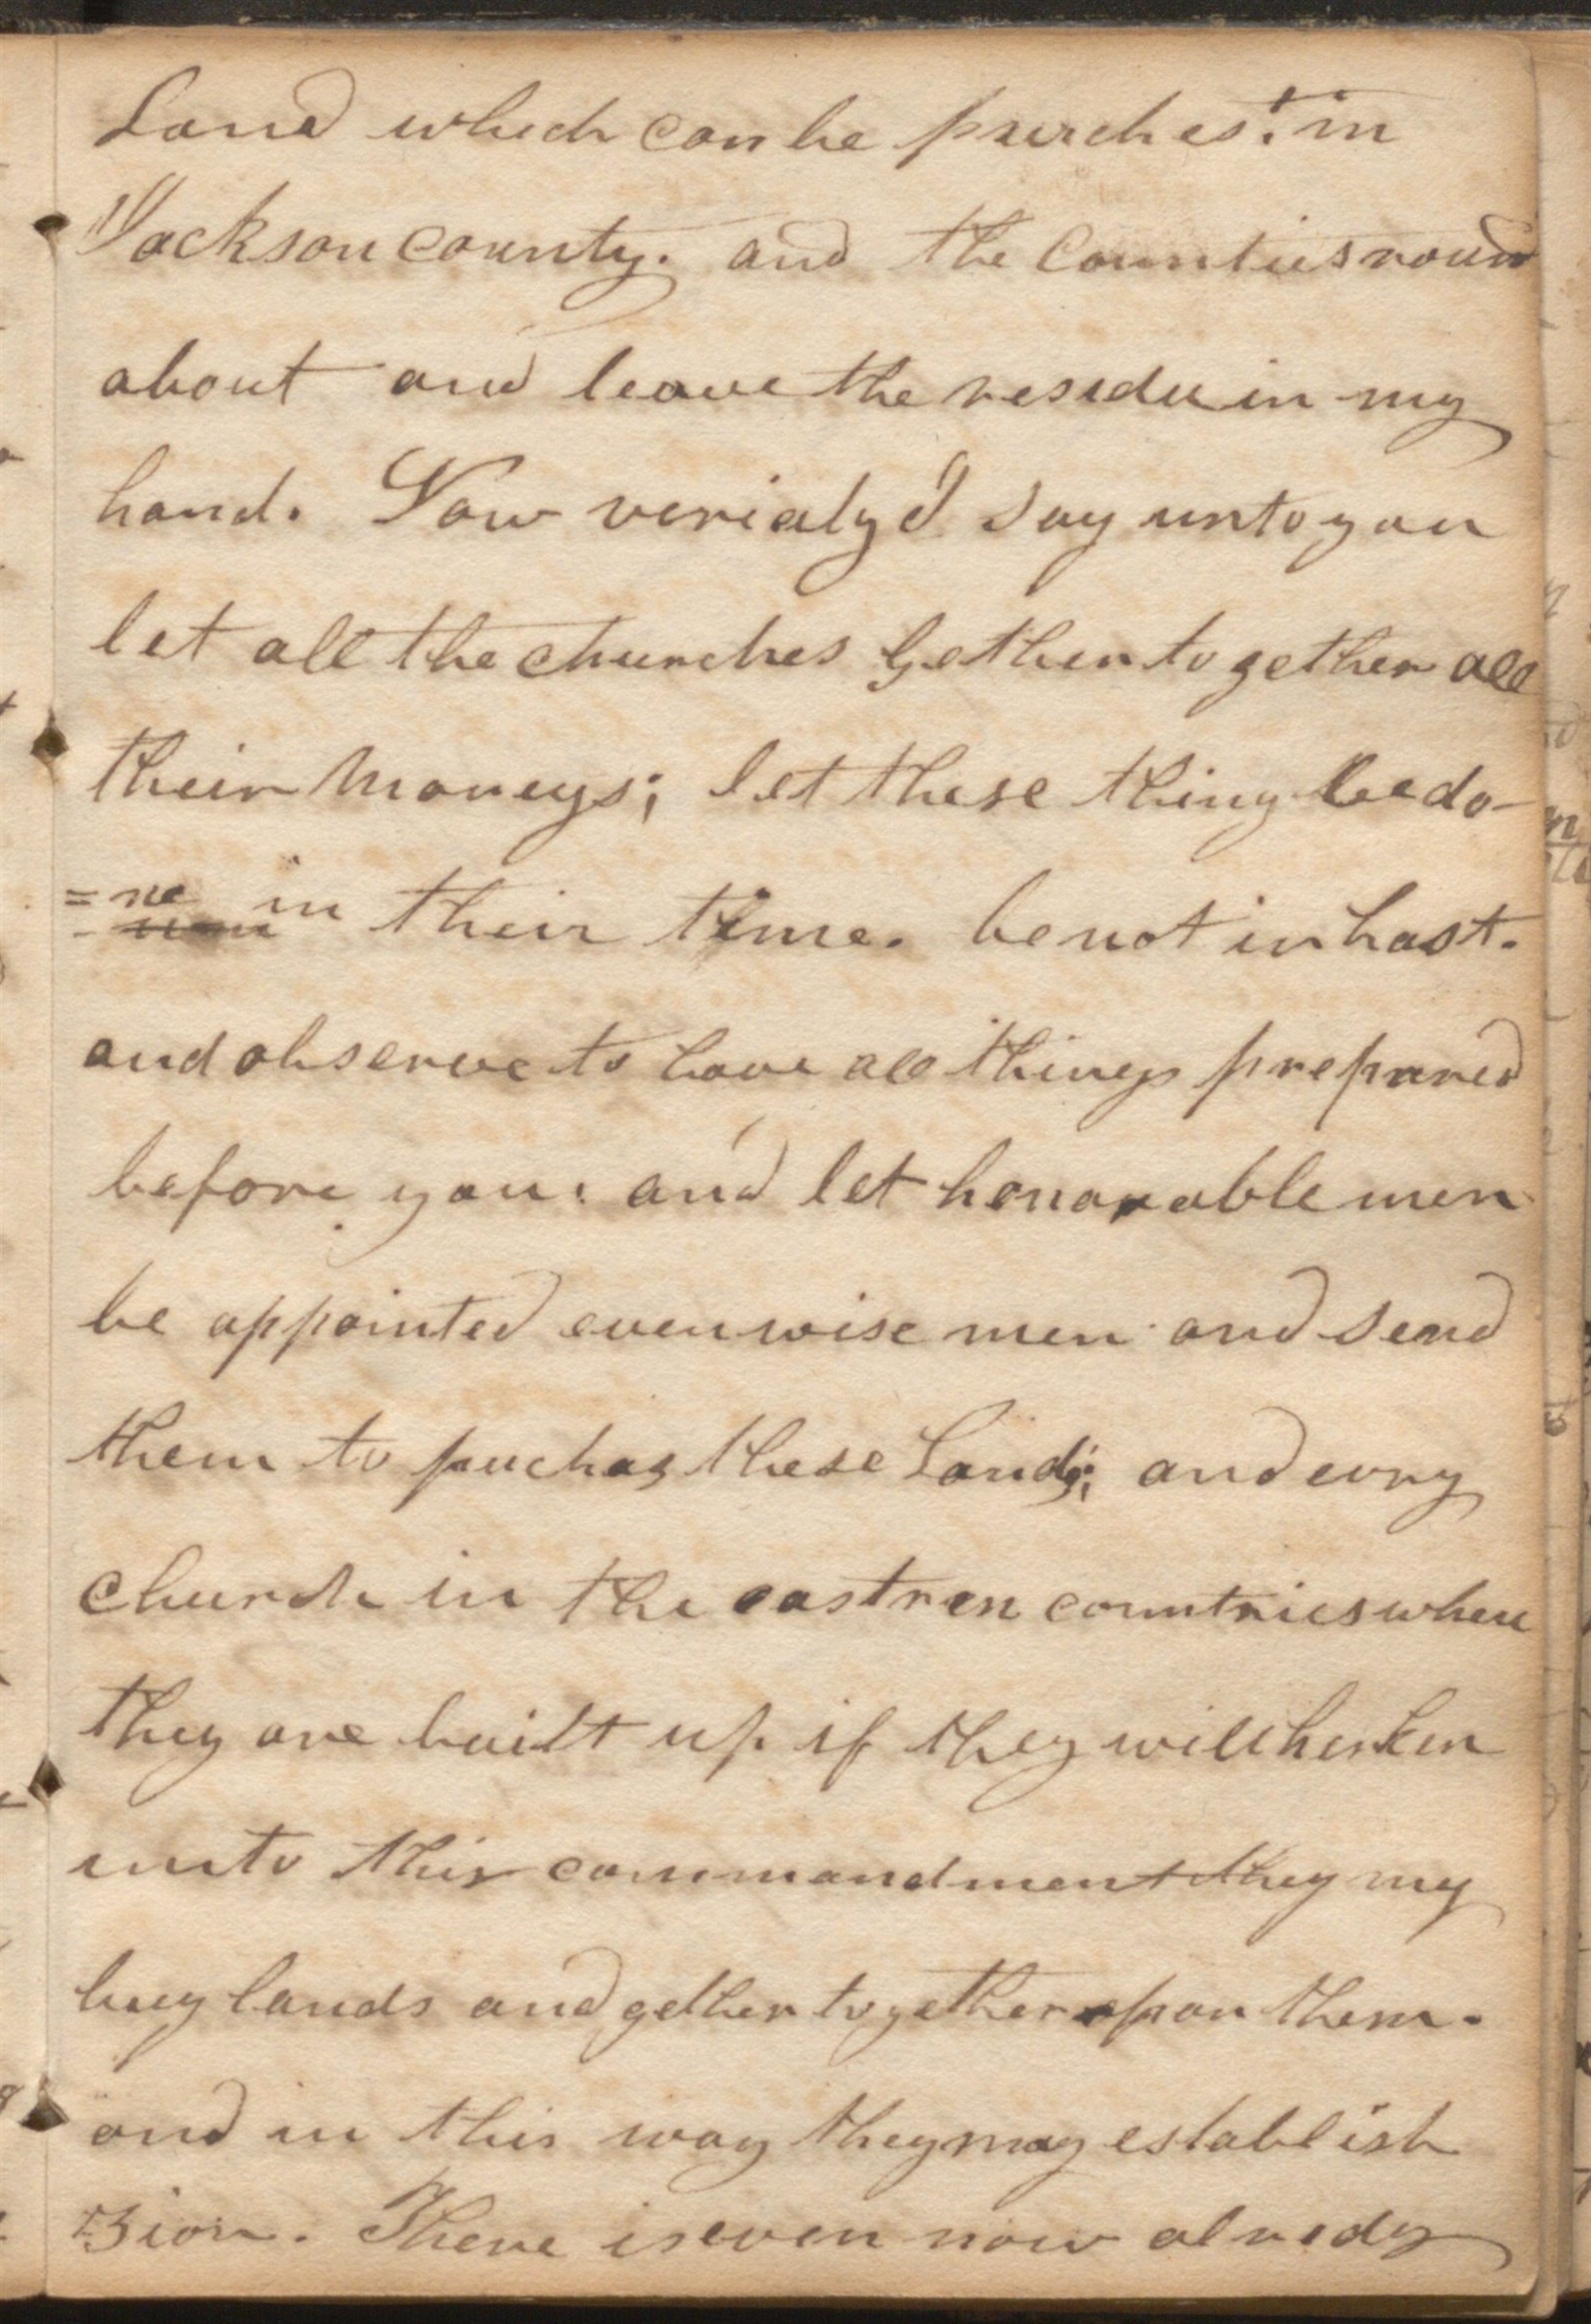 Land which can be purchest. in
Jackson county. and the Counties round
about and leave the residu in my
hand. Now verialy I say unto you
let all the churches gether together all
their moneys; let these thing be do-
=ne in their time. be not in hast.
and observe to have all things prepared
before you: and let honorable men
be appointed even wise men and send
them to puchas these Lands; and evry
church in the eastren countries when
they are built up if they will herken
unto this commandment they my
buy lands and gether together upon them.
and in this way they may establish
Zion. There is even now alredy